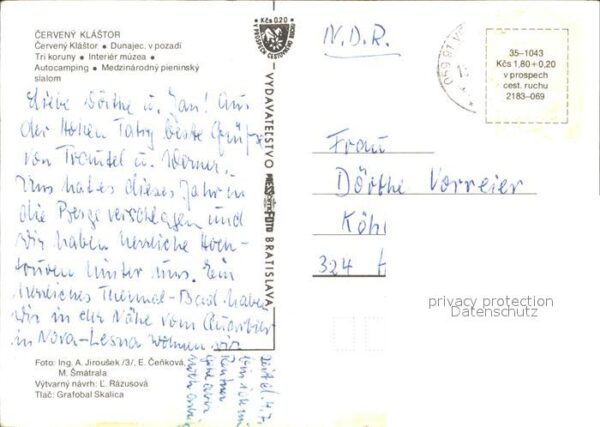 ČERVENÝ KLÁŠTOR
Červený Kláštor • Dunajec, v pozadí
Tri koruny • Interiér múzea •
Autocamping • Medzinárodný pieninský
slalom
Liebe Dörthe u. Jan! Aus
der Hohen Tatra beste Grüße
von Trautel u. Werner.
Uns hat es dieses Jahr in
die Berge verschlagen und
wir haben herrliche Hoch-
touren hinter uns. Ein
herrliches Thermal-Bad haben
wir in der Nähe vom Quartier
in Nova-Lesna wohnen wir
Foto: Ing. A. Jiroušek /3/, E. Čeňková,
M. Šmátrala
Výtvarný návrh: Ľ. Rázusová
Tlač: Grafobal Skalica
Kčs 0,20
V PROSPECH CESTOVNÉHO RUCHU
VYDAVATEĽSTVO
PRESSFOTO
BRATISLAVA
N.D.R.
059 91
35–1043
Kčs 1,80 + 0,20
v prospech
cest. ruchu
2183–069
Frau
Dörthe Vorreier
Köh
324
privacy protection
Datenschutz